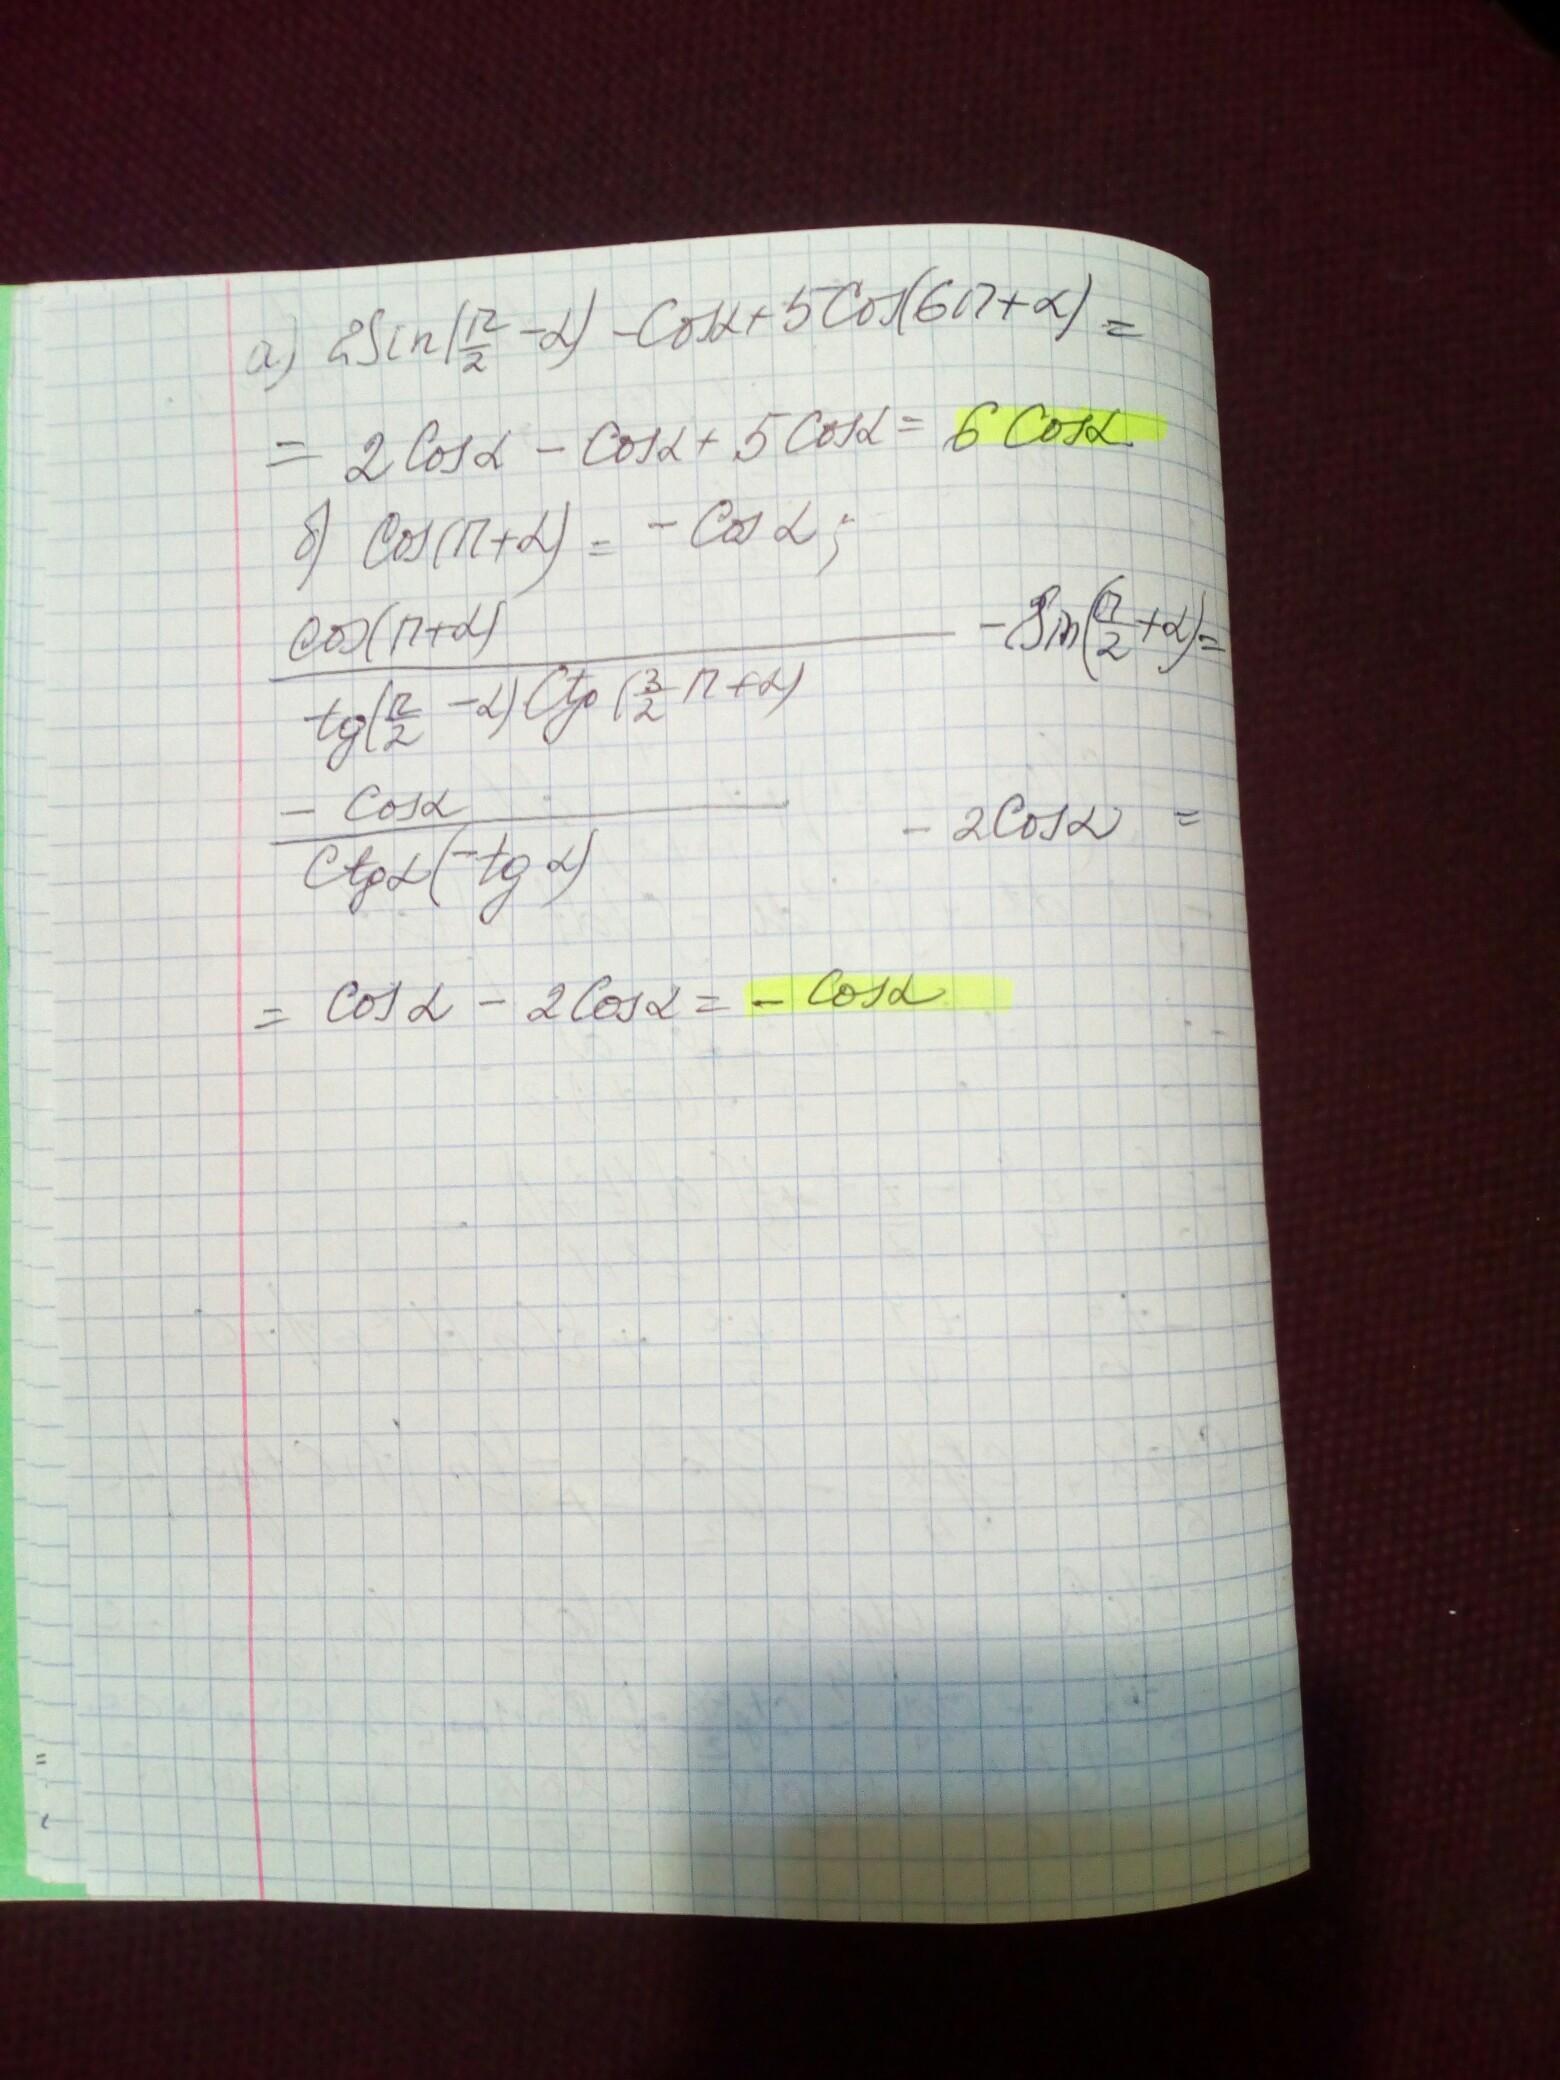 а) 2Sin(π/2 - α) - Cosα + 5Cos(6π + α) =
= 2Cosα - Cosα + 5Cosα = 6Cosα.
б) Cos(π + α) = - Cosα;
Cos(π + α) / tg(π/2 - α) Ctg(3/2 π + α) - Sin(π/2 + α) =
- Cosα / Ctgα(-tgα) - 2Cosα =
= Cosα - 2Cosα = - Cosα